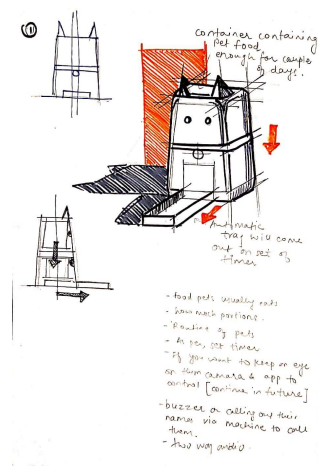 1
container containing
pet food
enough for couple
of days.
Automatic
tray will come
out on set of
times
- food pets usually eats
- how much portions.
- Routine of pets
- As per, set times
- If you want to keep an eye
on them camara & app to
control [continue in future]
- buzzer or calling out their
names via machine to call
them.
- two way audio.